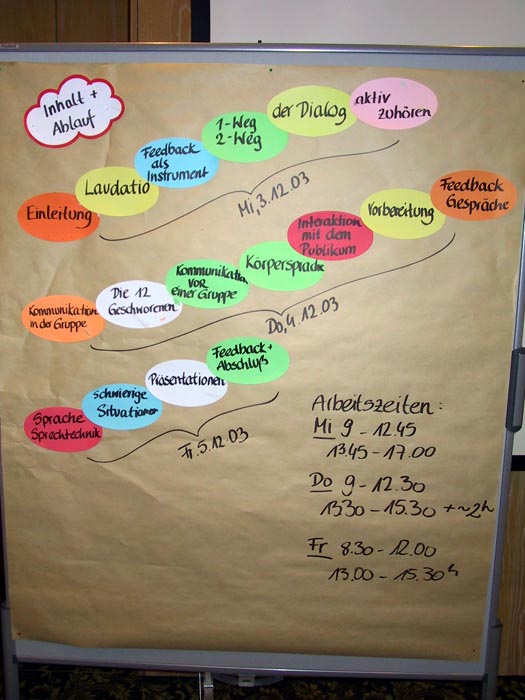 Inhalt +
Ablauf
Einleitung
Laudatio
Feedback
als
Instrument
1-Weg
2-Weg
der Dialog
aktiv
zuhören
Mi, 3.12.03
Kommunikation
in der Gruppe
Die 12
Geschworenen
Kommunikation
vor
einer Gruppe
Körpersprache
Interaktion
mit dem
Publikum
Vorbereitung
Feedback
Gespräche
Do, 4.12.03
Sprache
Sprechtechnik
Schwierige
Situationen
Präsentationen
Feedback +
Abschluß
Fr. 5.12.03
Arbeitszeiten:
Mi 9 - 12.45
13.45 - 17.00
Do 9 - 12.30
13.30 - 15.30 + ~2h
Fr 8.30 - 12.00
13.00 - 15.30h